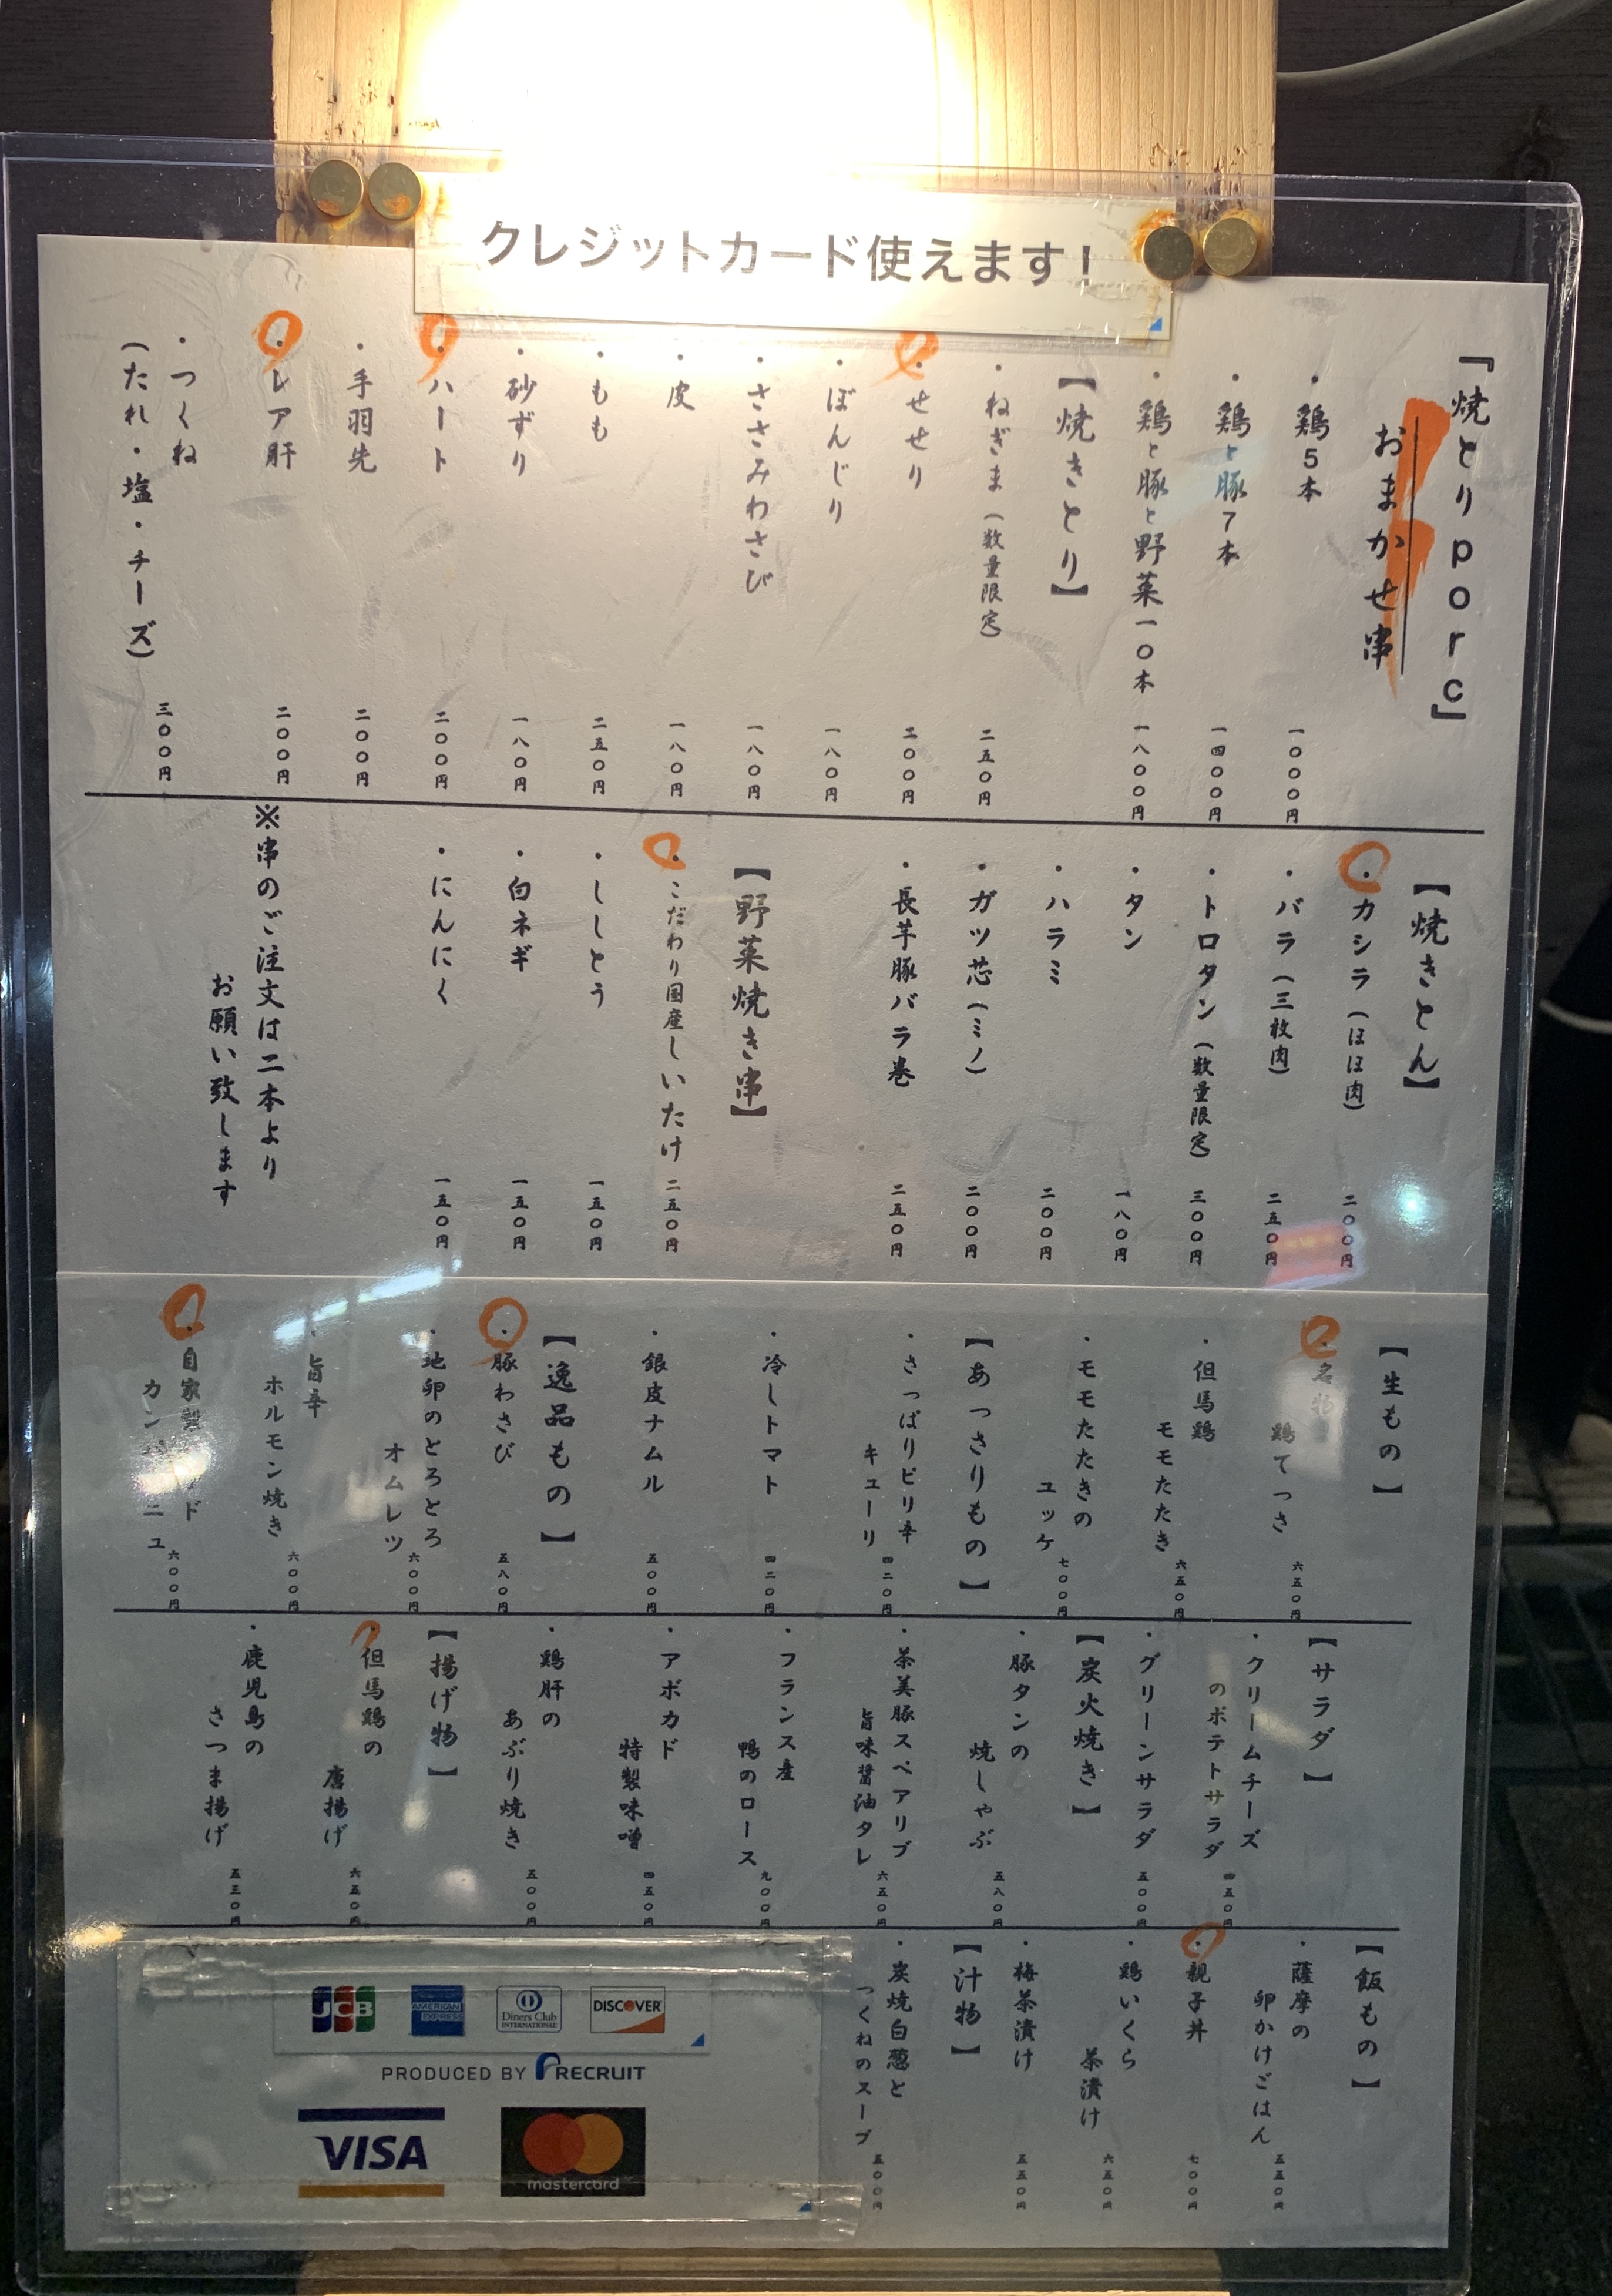 クレジットカード使えます!
『焼とりporc』
おまかせ串
・鶏5本 一〇〇〇円
・鶏と豚7本 一四〇〇円
・鶏と豚と野菜一〇本 一八〇〇円
【焼きとり】
・ねぎま(数量限定) 二五〇円
・せせり 二〇〇円
・ぼんじり 一八〇円
・ささみわさび 一八〇円
・皮 一八〇円
・もも 二五〇円
・砂ずり 一八〇円
・ハート 二〇〇円
・手羽先 二〇〇円
・レア肝 二〇〇円
・つくね
(たれ・塩・チーズ) 三〇〇円
【焼きとん】
・カシラ(ほほ肉) 二〇〇円
・バラ(三枚肉) 二五〇円
・トロタン(数量限定) 三〇〇円
・タン 一八〇円
・ハラミ 二〇〇円
・ガツ芯(ミノ) 二〇〇円
・長芋豚バラ巻 二五〇円
【野菜焼き串】
・こだわり国産しいたけ 二五〇円
・ししとう 一五〇円
・白ネギ 一五〇円
・にんにく 一五〇円
※串のご注文は二本より
お願い致します
【生もの】
・名物
鶏てっさ 六五〇円
・但馬鶏
モモたたき 六五〇円
・モモたたきの
ユッケ 七〇〇円
【あっさりもの】
・さっぱりピリ辛
キューリ 四二〇円
・冷しトマト 四二〇円
・銀皮ナムル 五〇〇円
【逸品もの】
・豚わさび 五八〇円
・地卵のとろとろ
オムレツ 六〇〇円
・旨辛
ホルモン焼き 六〇〇円
・自家製 ド
カン ニュ 六〇〇円
【サラダ】
・クリームチーズ
のポテトサラダ 四五〇円
・グリーンサラダ 五〇〇円
【炭火焼き】
・豚タンの
焼しゃぶ 五八〇円
・茶美豚スペアリブ
旨味醤油タレ 六五〇円
・フランス産
鴨のロース 九〇〇円
・アボカド
特製味噌 四五〇円
・鶏肝の
あぶり焼き 五〇〇円
【揚げ物】
・但馬鶏の
唐揚げ 六五〇円
・鹿児島の
さつま揚げ 五三〇円
【飯もの】
・薩摩の
卵かけごはん 五五〇円
・親子丼 七〇〇円
・鶏いくら
茶漬け 六五〇円
・梅茶漬け 五五〇円
【汁物】
・炭焼白葱と
つくねのスープ 五〇〇円
JCB
AMERICAN EXPRESS
Diners Club INTERNATIONAL
DISCOVER
PRODUCED BY RECRUIT
VISA
mastercard